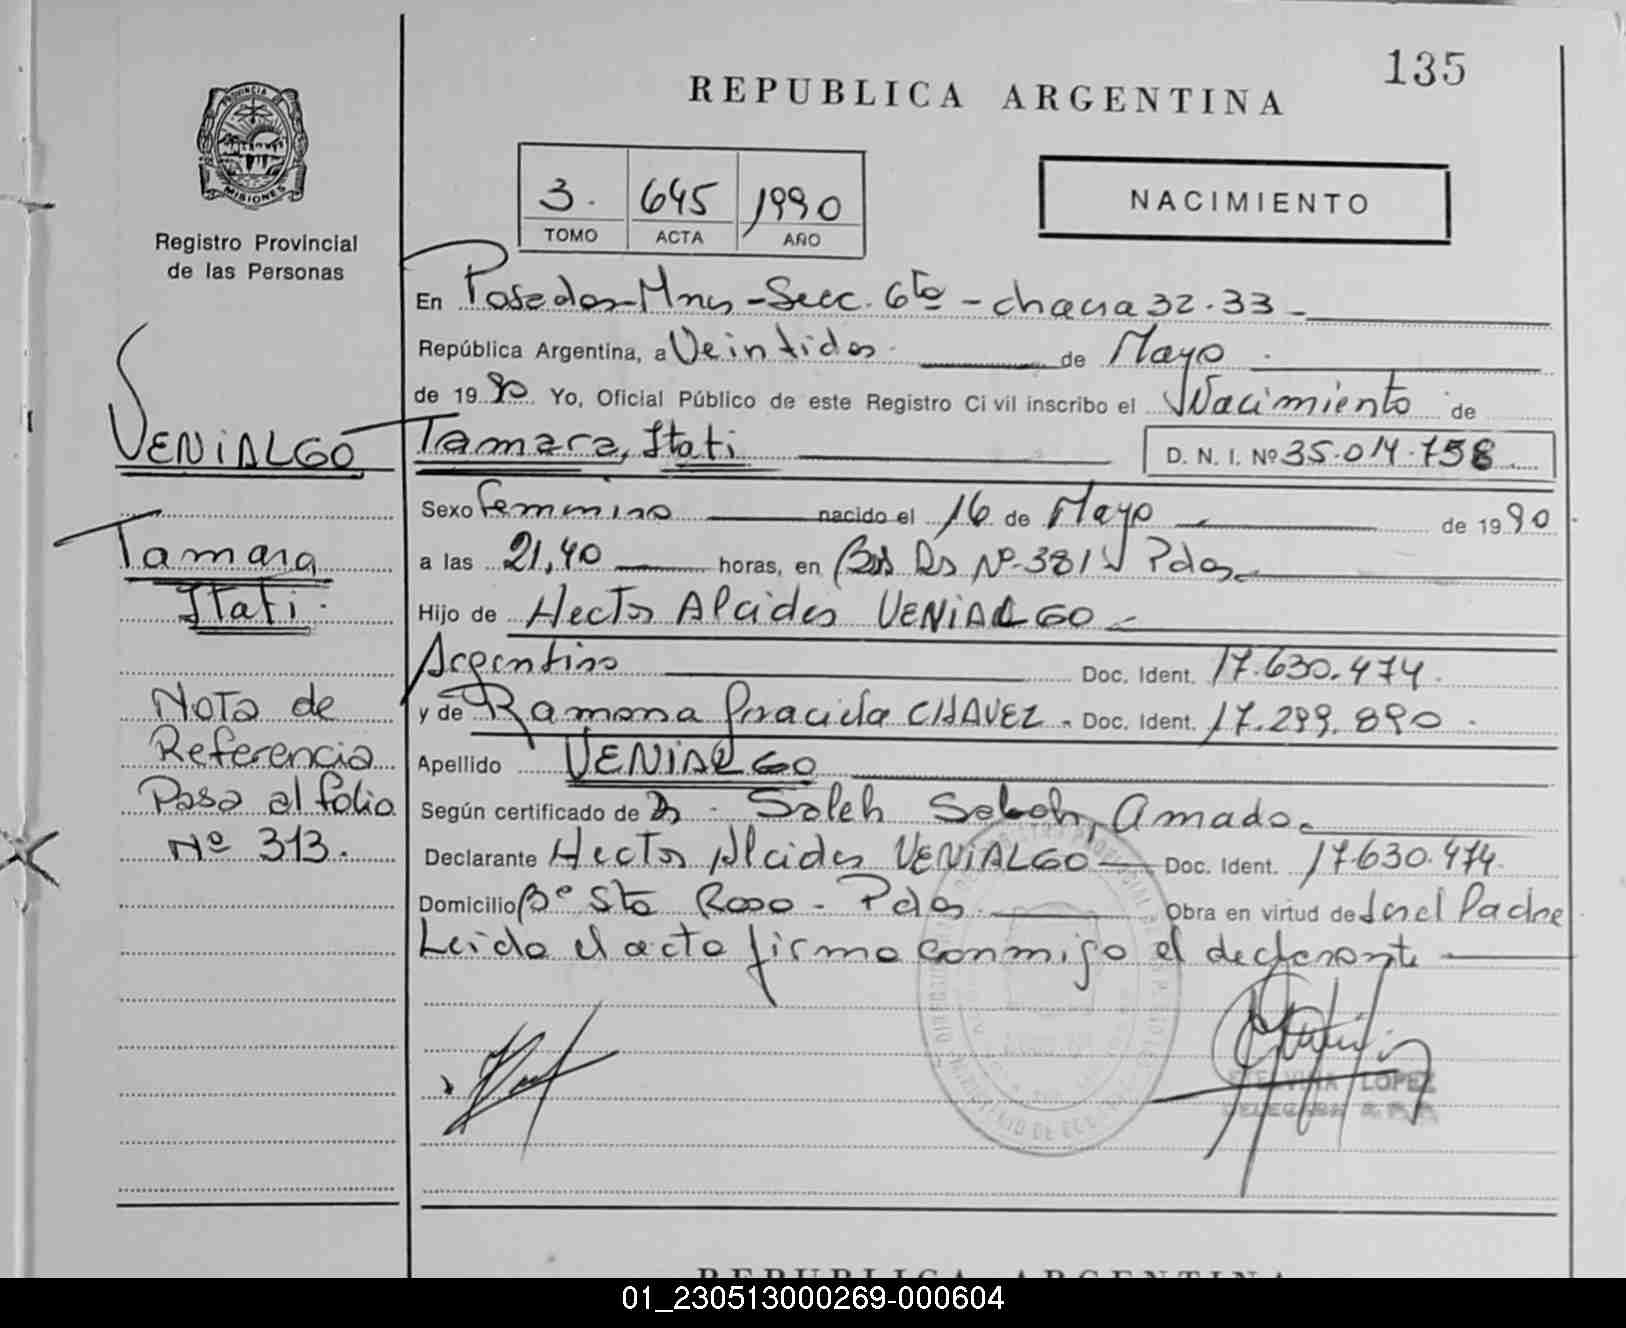 135
REPUBLICA ARGENTINA
PROVINCIA DE
MISIONES
Registro Provincial
de las Personas
3. 645 1990
TOMO ACTA AÑO
NACIMIENTO
En Posadas-Mnes-Secc. 6ta - chacra 32.33
República Argentina, a Veintidos de Mayo
de 1990 Yo, Oficial Público de este Registro Civil inscribo el Nacimiento de
Tamara, Itati D. N. I. Nº 35.014.758
Sexo Femenino nacido el 16 de Mayo de 1990
a las 21,40 horas, en Nº 381 Pdas
Hijo de Hector Alcides VENIALGO
Argentino Doc. Ident. 17.630.474
y de Ramona Graciela CHAVEZ Doc. Ident. 17.299.890
Apellido VENIALGO
Según certificado de Dr. Saleh Seboh, Amado
Declarante Hector Alcides VENIALGO Doc. Ident. 17.630.474
Domicilio Bº Sta Rosa - Pdas Obra en virtud de Ser el Padre
Leido el acta firma conmigo el declarante
VENIALGO
Tamara
Itati
Nota de
Referencia
Pasa al folio
Nº 313.
LOPEZ
REPUBLICA ARGENTINA
01_230513000269-000604